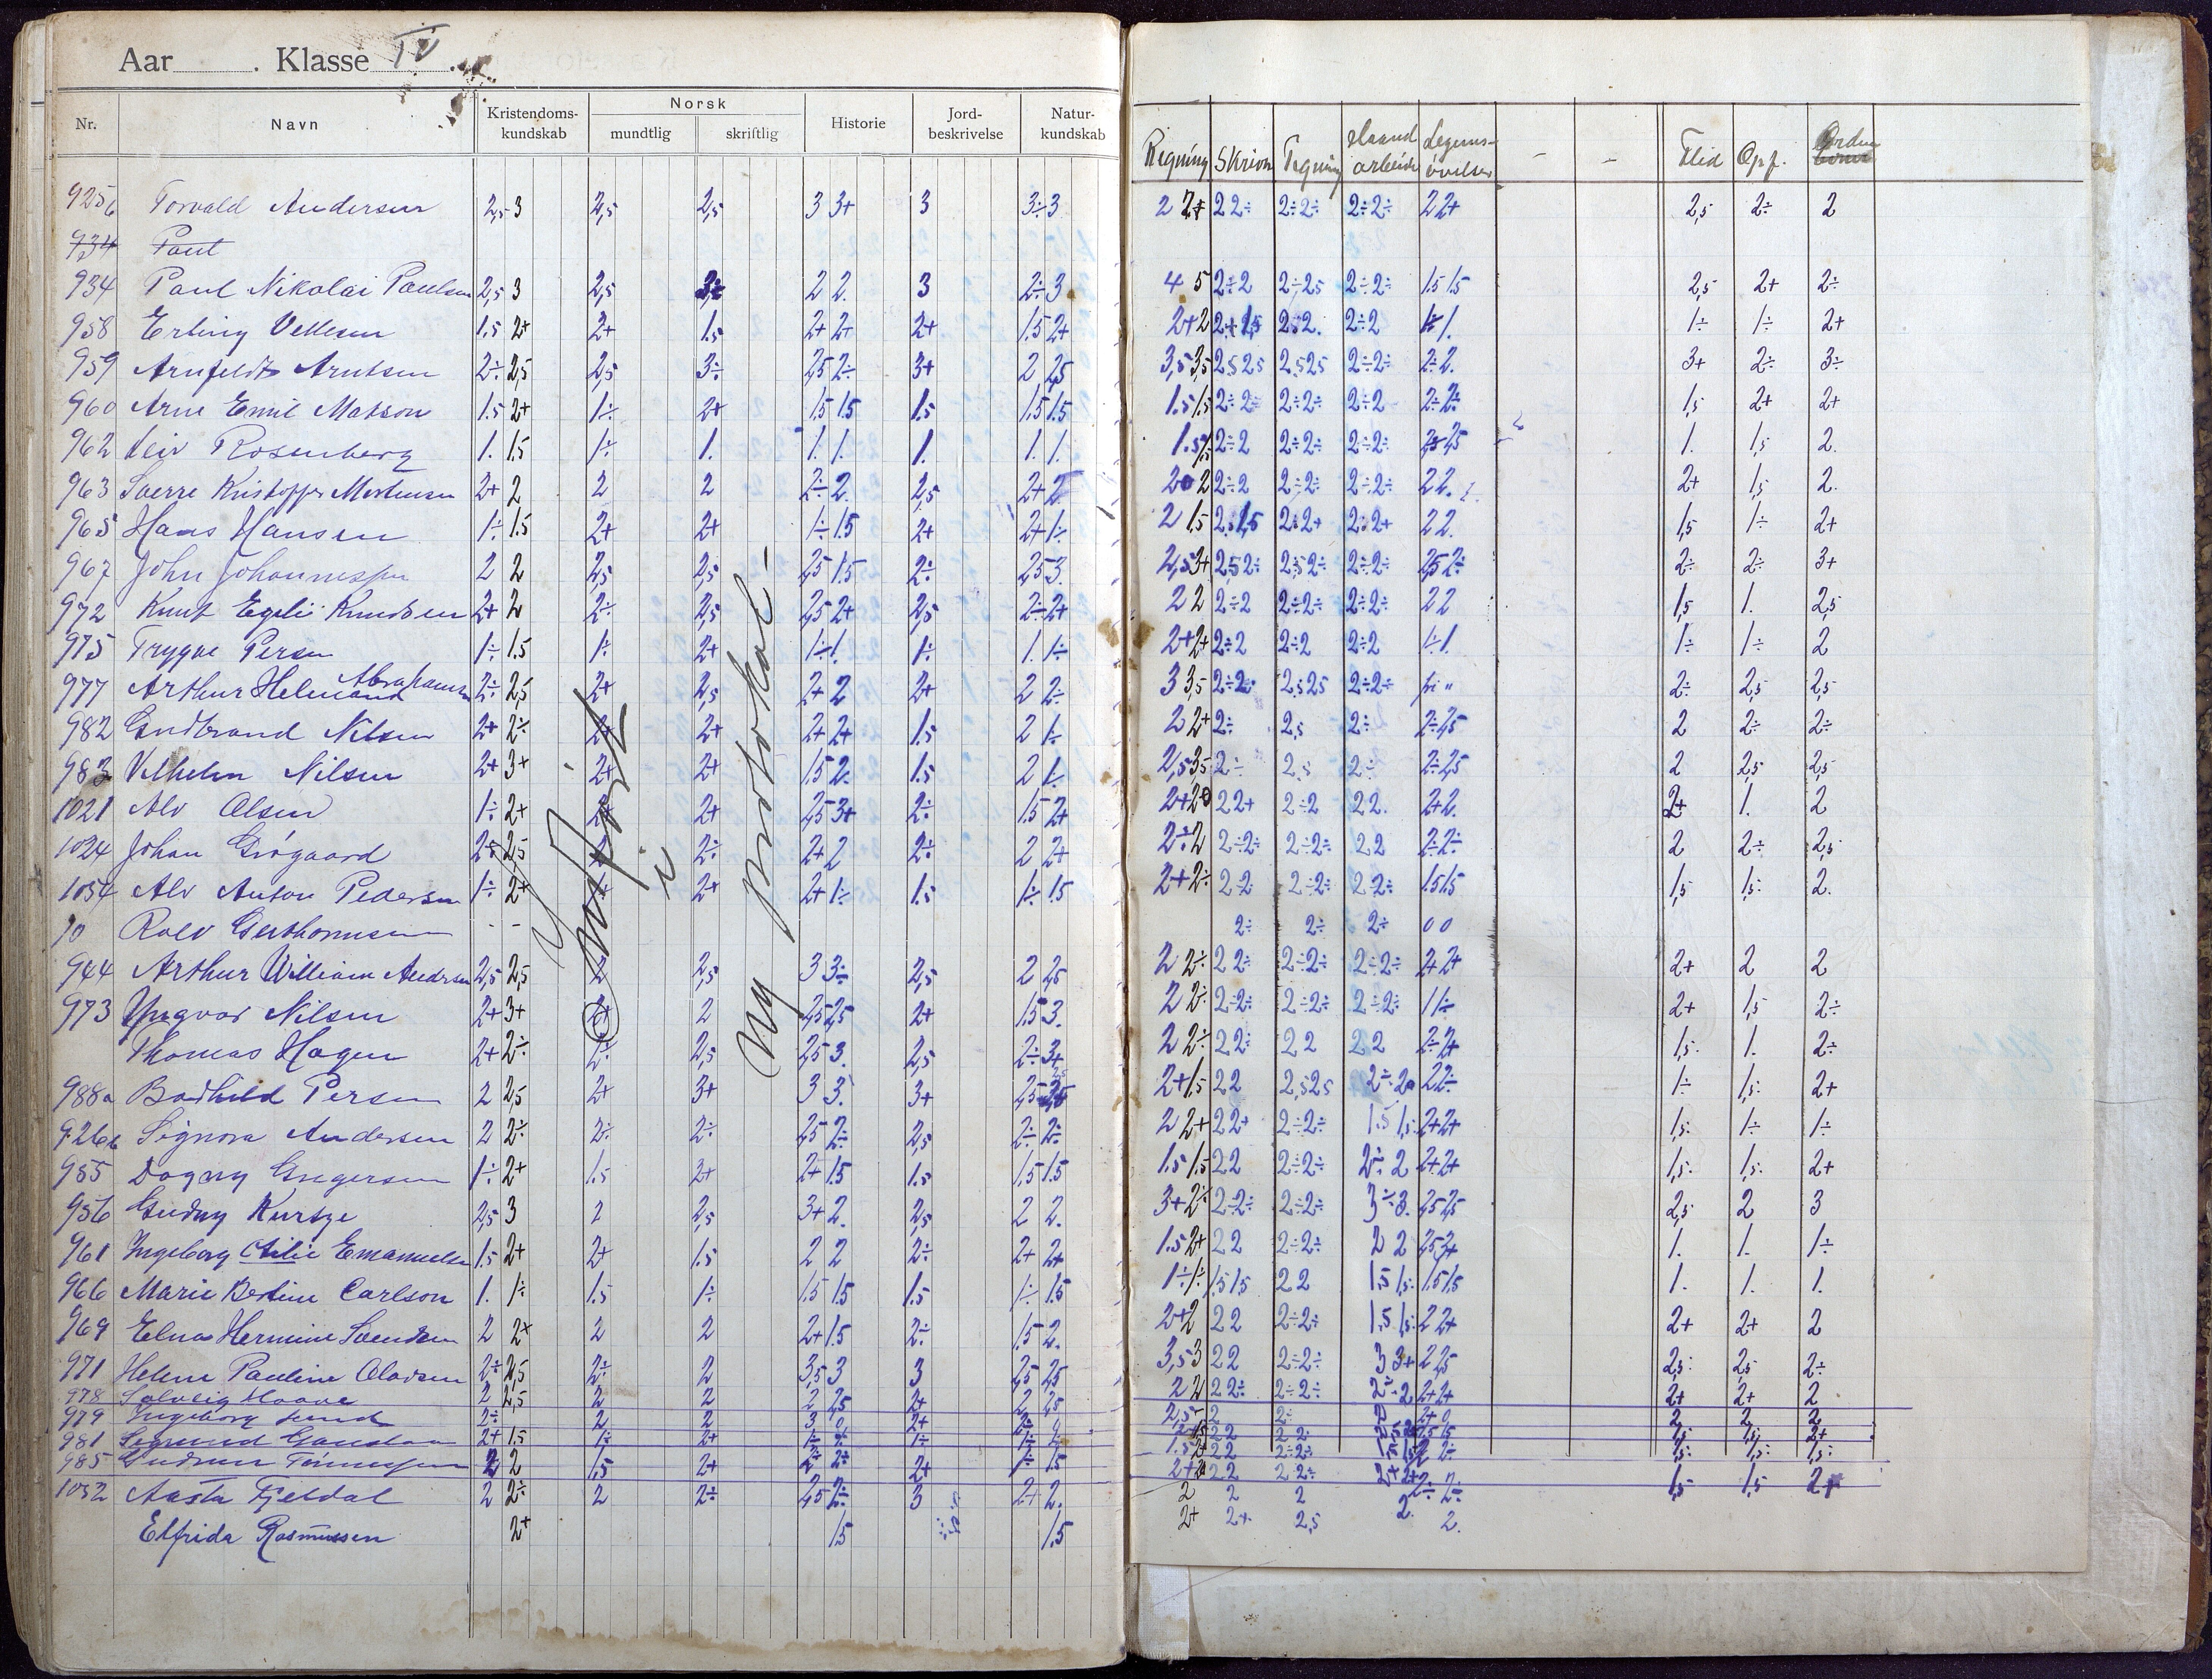 Aar . Klasse IV.
Nr. Navn Kristendoms-kundskab Norsk mundtlig skriftlig Historie Jord-beskrivelse Natur-kundskab Regning Skrivn Tegning Haand arbeide Legems-övelser - - Flid Opf. Orden
925b Torvald Andersen 2,5 3 2,5 2,5 3 3+ 3 3÷ 3 2 2+ 2 2÷ 2÷ 2÷ 2÷ 2÷ 2 2+ 2,5 2÷ 2
934 Paul
934 Paul Nikolai Paulsen 2,5 3 2,5 2 2. 3 2÷ 3 4 5 2÷ 2 2÷ 25 2÷ 2÷ 15 15 2,5 2+ 2÷
958 Erling Vellesen 1.5 2+ 2+ 1.5 2+ 2+ 2+ 1.5 2+ 2+ 2 2+ 1,5 2. 2÷ 2 1÷ 1. 1÷ 1÷ 2+
959 Arnfeldt Arntsen 2÷ 2,5 2,5 3÷ 2,5 2÷ 3+ 2 2,5 3,5 3,5 2,5 2,5 2,5 25 2÷ 2÷ 2÷ 2. 3+ 2÷ 3÷
960 Arne Emil Matson 1.5 2+ 1÷ 2+ 1,5 1.5 1.5 1.5 1.5 1.5 1.5 2÷ 2÷ 2÷ 2÷ 2÷ 2 2÷ 2÷ 1,5 2+ 2+
962 Leiv Rosenberg 1. 1.5 1÷ 1. 1. 1. 1. 1. 1. 1.5 2÷ 2 2÷ 2÷ 2÷ 2÷ 1. 1,5 2.
963 Sverre Kristoffer Mortensen 2+ 2 2 2 2÷ 2. 2,5 2+ 2 2 2 2÷ 2 2÷ 2÷ 2÷ 2÷ 2 2. 2+ 1,5 2.
965 Hans Hansen 1÷ 1.5 2+ 2+ 1÷ 1.5 2+ 2+ 1÷ 2 1,5 2. 1,5 2. 2+ 2. 2+ 2 2. 1,5 1÷ 2+
967 John Johannessen 2 2 2,5 2,5 2,5 1.5 2÷ 2,5 3. 2,5 3+ 2,5 2÷ 2,5 2÷ 2÷ 2÷ 2,5 2÷ 2÷ 2÷ 3+
972 Knut Egeli Knudsen 2+ 2 2÷ 2,5 2,5 2+ 2,5 2÷ 2+ 2 2 2÷ 2 2÷ 2÷ 2÷ 2÷ 2 2 1,5 1. 2,5
975 Trygve Persen 1÷ 1.5 1÷ 2+ 1÷ 1. 1÷ 1. 1÷ 2+ 2+ 2÷ 2 2÷ 2 2÷ 2 1÷ 1. 1÷ 1÷ 2
977 Arthur Helmand Abrahamsen 2÷ 2,5 2+ 2,5 2+ 2 2+ 2 2÷ 3 3,5 2÷ 2÷ 2,5 25 2÷ 2÷ fri " 2÷ 2,5 2,5
982 Gudbrand Nilsen 2+ 2÷ 2+ 2+ 2+ 2+ 1.5 2 1÷ 2 2+ 2÷ 2,5 2÷ 2÷ 2,5 2 2÷ 2÷
983 Vilhelm Nilsen 2+ 3+ 2+ 2+ 1.5 2. 1.5 2 1÷ 2,5 3,5 2÷ 2,5 2÷ 2÷ 2,5 2 2,5 2,5
1021 Alv Olsen 1÷ 2+ 2+ 2+ 2,5 3+ 2÷ 1.5 2+ 2+ 2 2 2+ 2÷ 2 2 2. 2+ 2. 2+ 1. 2
1024 Johan Grögaard 2,5 2÷ 2+ 2 2÷ 2 2+ 2÷ 2 2÷ 2÷ 2÷ 2÷ 2 2 2÷ 2÷ 2 2÷ 2,5
1054 Alv Anton Pedersen 1÷ 2+ 2+ 2+ 1÷ 1.5 1÷ 1.5 2+ 2÷ 2 2 2÷ 2÷ 2 2÷ 1.5 1.5 1,5 1,5 2.
10 Rolv Gerthomsen - - 2÷ 2÷ 2÷ 0 0
944 Arthur William Andersen 2,5 2,5 2 2,5 3 3÷ 2,5 2 2,5 2 2÷ 2 2÷ 2÷ 2÷ 2÷ 2÷ 2+ 2+ 2+ 2 2
973 Yngvar Nilsen 2+ 3+ 2+ 2 2,5 2,5 2+ 1.5 3. 2 2÷ 2÷ 2÷ 2÷ 2÷ 2÷ 2÷ 1 1÷ 2+ 1,5 2÷
Thomas Hagen 2+ 2÷ 2÷ 2,5 2,5 3. 2,5 2÷ 3+ 2 2÷ 2 2÷ 2 2 2 2 2÷ 2+ 1,5. 1. 2÷
988a Bodhild Persen 2 2,5 2+ 3+ 3 3. 3+ 2+ 1.5 2 2 2,5 2,5 2÷ 2 2÷ 1÷ 1,5. 2+
926b Signora Andersen 2 2÷ 2÷ 2÷ 2,5 2÷ 2,5 2÷ 2÷ 2 2+ 2 2+ 2÷ 2÷ 1.5 1,5. 2+ 2+ 1,5. 1÷ 1÷
955 Dagny Gregersen 1÷ 2+ 1.5 2+ 2+ 1.5 1.5 1.5 1.5 1.5 1.5 2 2 2÷ 2÷ 2÷ 2 2+ 2+ 1,5. 1,5. 2+
956 Gudny Kurtze 2,5 3 2 2,5 3+ 2. 2,5 2 2. 3+ 2÷ 2÷ 2÷ 2÷ 2÷ 3÷ 3. 2,5 2,5 2,5. 2 3
961 Ingeborg Otilie Emanuelsen 1.5 2+ 2+ 1.5 2 2 2÷ 2+ 2+ 1.5 2+ 2 2 2÷ 2÷ 2 2 2,5 2+ 1. 1. 1÷
966 Marie Bertine Carlson 1. 1÷ 1.5 1÷ 1.5 1.5 1.5 1÷ 1.5 1÷ 1÷ 1.5 1.5 2 2 1.5 1,5. 1.5 1.5 1. 1. 1.
969 Elna Hermine Svendsen 2 2+ 2 2 2+ 1.5 2÷ 1.5 2. 2+ 2 2 2 2÷ 2÷ 1.5 1,5. 2 2+ 2+ 2+ 2
971 Helene Pauline Olavsen 2÷ 2,5 2÷ 2 3,5 3 3 2,5 2,5 3,5 3 2 2 2÷ 2÷ 3 3+ 2 2,5 2,5. 2,5 2÷
978 Solveig Haave 2 2,5 2 2 2 2,5 2+ 2 2,5 2 2 2 2÷ 2÷ 2÷ 2÷ 2 2+ 2+ 2+ 2+ 2
979 Ingeborg Lund 2÷ 2 2 3 0 2+ 2÷ 0 2,5 2 2÷ 2 2+ 0 2 2 2
981 2+ 1.5 1÷ 2+ 1÷ 1÷ 1÷ 2 2 2 2÷ 1,5 1,5. 2+
985 Gudrun Tönnessen 2 2 1.5 2+ 2÷ 2÷ 2+ 1÷ 1.5 2 2 2÷ 2÷ 1,5. 1,5. 1,5.
1052 Aasta Fjeldal 2 2÷ 2 2÷ 2,5 2÷ 3 2+ 2. 2 2 2 2÷ 2÷ 1,5 1,5 2+
Elfrida Rasmussen 2+ 1.5 1.5 2+ 2+ 2,5 2. 2.
fört
i
ny protokol -